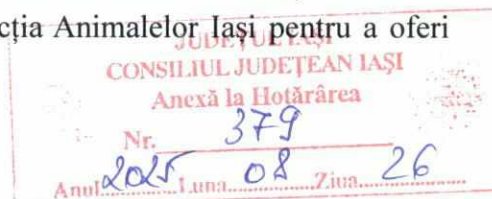 cția Animalelor Iași pentru a oferi
JUDEȚUL IAȘI
CONSILIUL JUDEȚEAN IAȘI
Anexă la Hotărârea
Nr. 379
Anul 2025 Luna 08 Ziua 26